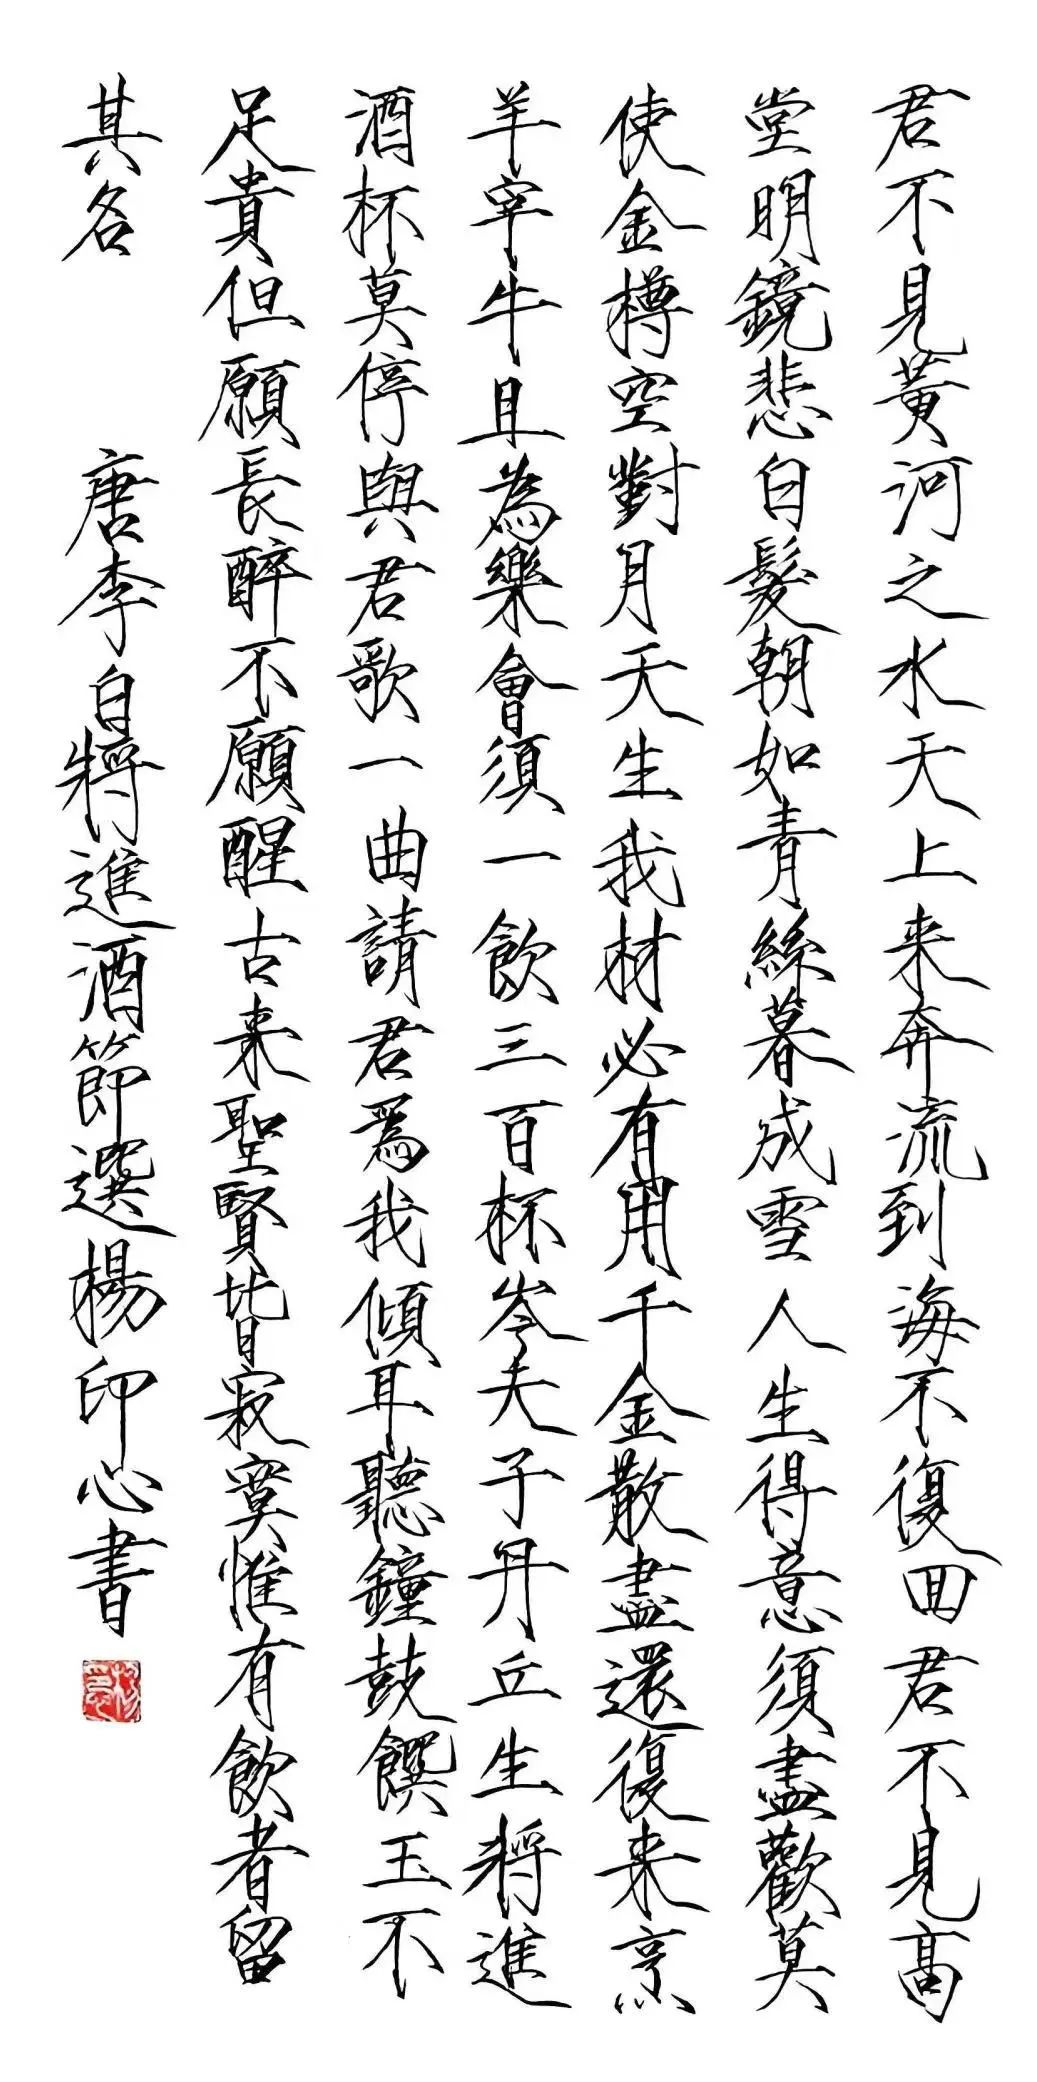 君不見黃河之水天上来奔流到海不復回君不見高
堂明鏡悲白髮朝如青絲暮成雪人生得意須盡歡莫
使金樽空對月天生我材必有用千金散盡還復来烹
羊宰牛且為樂會須一飲三百杯岑夫子丹丘生將進
酒杯莫停與君歌一曲請君爲我傾耳聽鐘鼓饌玉不
足貴但願長醉不願醒古来聖賢皆寂寞惟有飲者留
其名 唐李白將進酒節選楊印心書